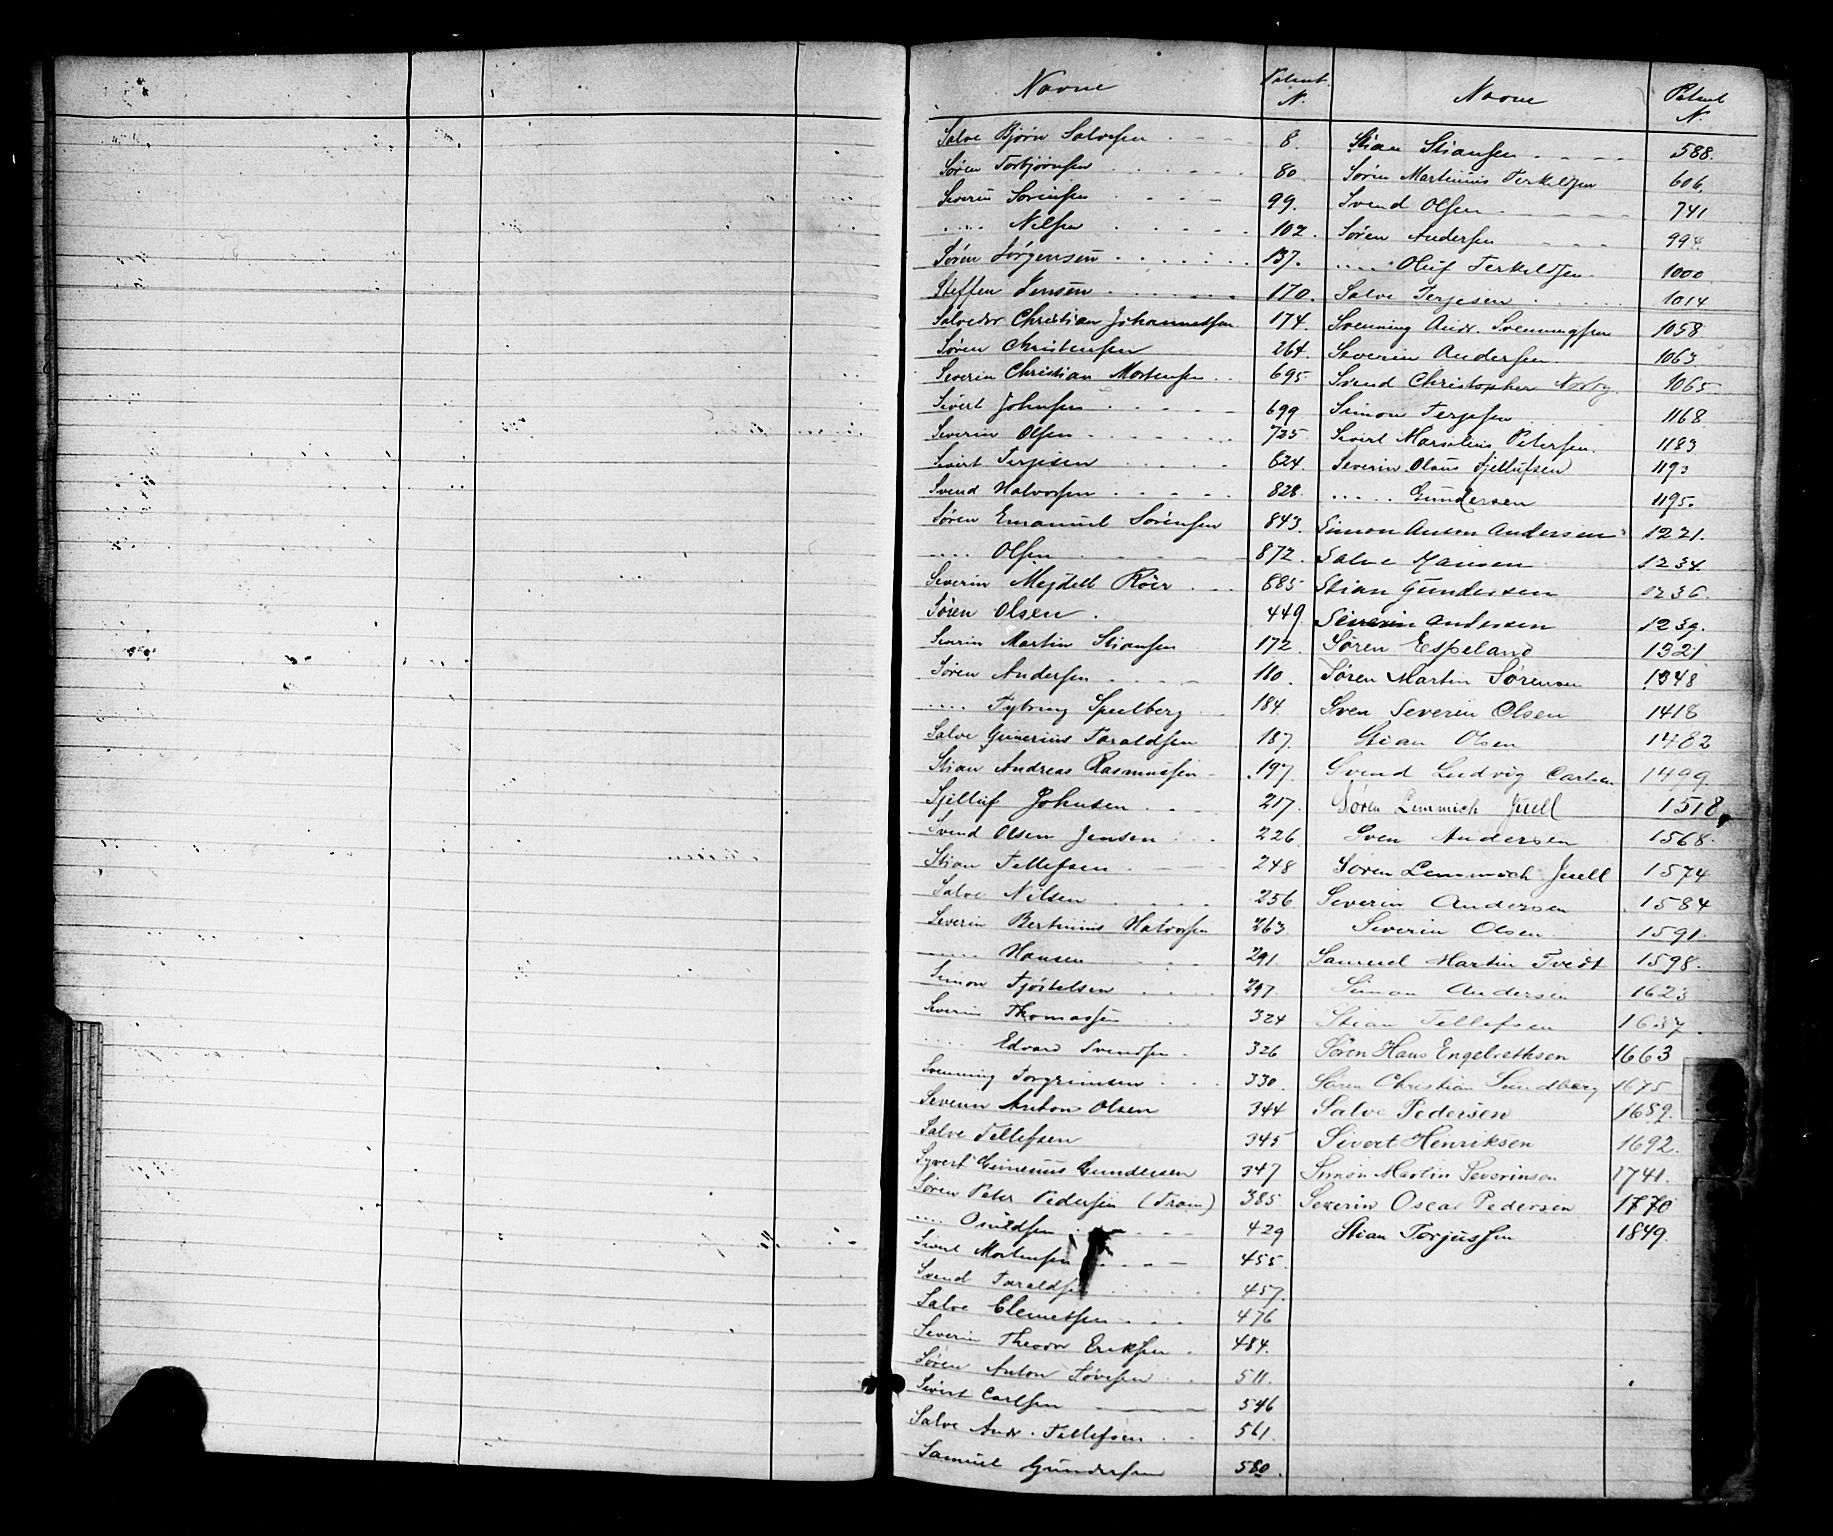 Navne Patent N. Navne Patent N.
Salve Bjørn Salvesen 8. Stian Stiansen 588.
Søren Torbjørnsen 80 Søren Martinius Terkildsen 606.
Severin Sørensen 99. Svend Olsen 741
.... Nilsen 102. Søren Andersen 994
Søren Jørgensen 137. .... Oluf Terkildsen 1000
Steffen Jensen 170. Salve Terjesen 1014
Salvedor Christian Johannessen 174. Svenning Andr. Svenningsen 1058
Søren Christensen 264. Severin Andersen 1063
Severin Christian Mortensen 695 Svend Christopher Nørby 1065
Sivert Johnsen 699 Simon Terjesen 1168
Severin Olsen 725 Sivert Marselius Petersen 1183
Sivert Terjesen 824. Severin Olaus Fjellufsen 1193
Svend Halvorsen 828. .... Gundersen 1195.
Søren Emanuel Sørensen 843. Simon Anton Andersen 1221.
.... Olsen 872. Salve Hansen 1234.
Severin Mejdell Röer 885 Stian Gundersen 1236
Søren Olsen 449 Severin Andersen 1239.
Severin Martin Stiansen 172. Søren Espeland 1321
Søren Andersen 180. Søren Martin Sørensen 1348
.... Tybring Speilberg 184. Sven Severin Olsen 1418
Salve Gunerius Taraldsen 187. Stian Olsen 1482
Stian Andreas Rasmussen 197 Svend Ludvig Carlsen 1499
Fjelluf Johnsen 217. Søren Lemmich Juell 1518
Svend Olsen Jensen 226 Sven Andersen 1568
Stian Tellefsen 248 Søren Lemmich Juell 1574
Salve Nilsen 256 Severin Andersen 1584
Severin Bertinius Halvorsen 263 Severin Olsen 1591.
.... Hansen 291. Samuel Martin Tvedt 1598.
Simon Fjøstelsen 297. Simon Andersen 1623
Severin Thomassen 324 Stian Tellefsen 1637
.... Edvard Svendsen 326 Søren Hans Engebrethsen 1663
Svenning Torgrimsen 330 Søren Christian Sundberg 1675
Severin Anton Olsen 344 Salve Pedersen 1689.
Salve Tellefsen 345 Sivert Henriksen 1692.
Syvert Gunerius Gundersen 347 Simon Martin Severinsen 1741.
Søren Peter Pedersen (Fram) 385 Severin Oscar Pedersen 1770
.... Osuldsen 429 Stian Torjussen 1849.
Sivert Mortensen 455.
Svend Taraldsen 457.
Salve Clemetsen 476
Severin Theodor Eriksen 484.
Søren Anton Tøvesen 511.
Sivert Carlsen 546
Salve Andr. Tellefsen 561.
Samuel Gundersen 580.